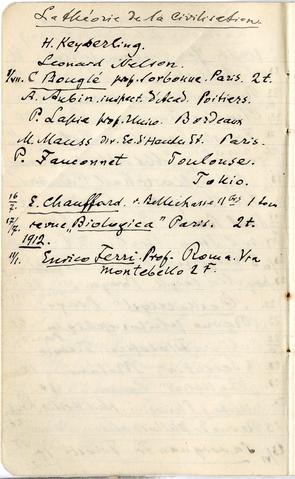 La théorie de la Civilisation.
H. Keyserling.
Leonard Nelson.
C. Bouglé prof. Sorbonne. Paris. 2t.
A. Aubin, inspect. d'Acad. Poitiers.
P. Lapie prof. Univ. Bordeaux
M. Mauss dir. Ec. d'Hautes Et. Paris.
P. Fauconnet Toulouse.
Tokio.
E. Chauffard r. Bellechasse 11
revue "Biologica" Paris. 2t.
1912.
11/1. Enrico Ferri. Prof. Roma. Via
Montebello 2 F.